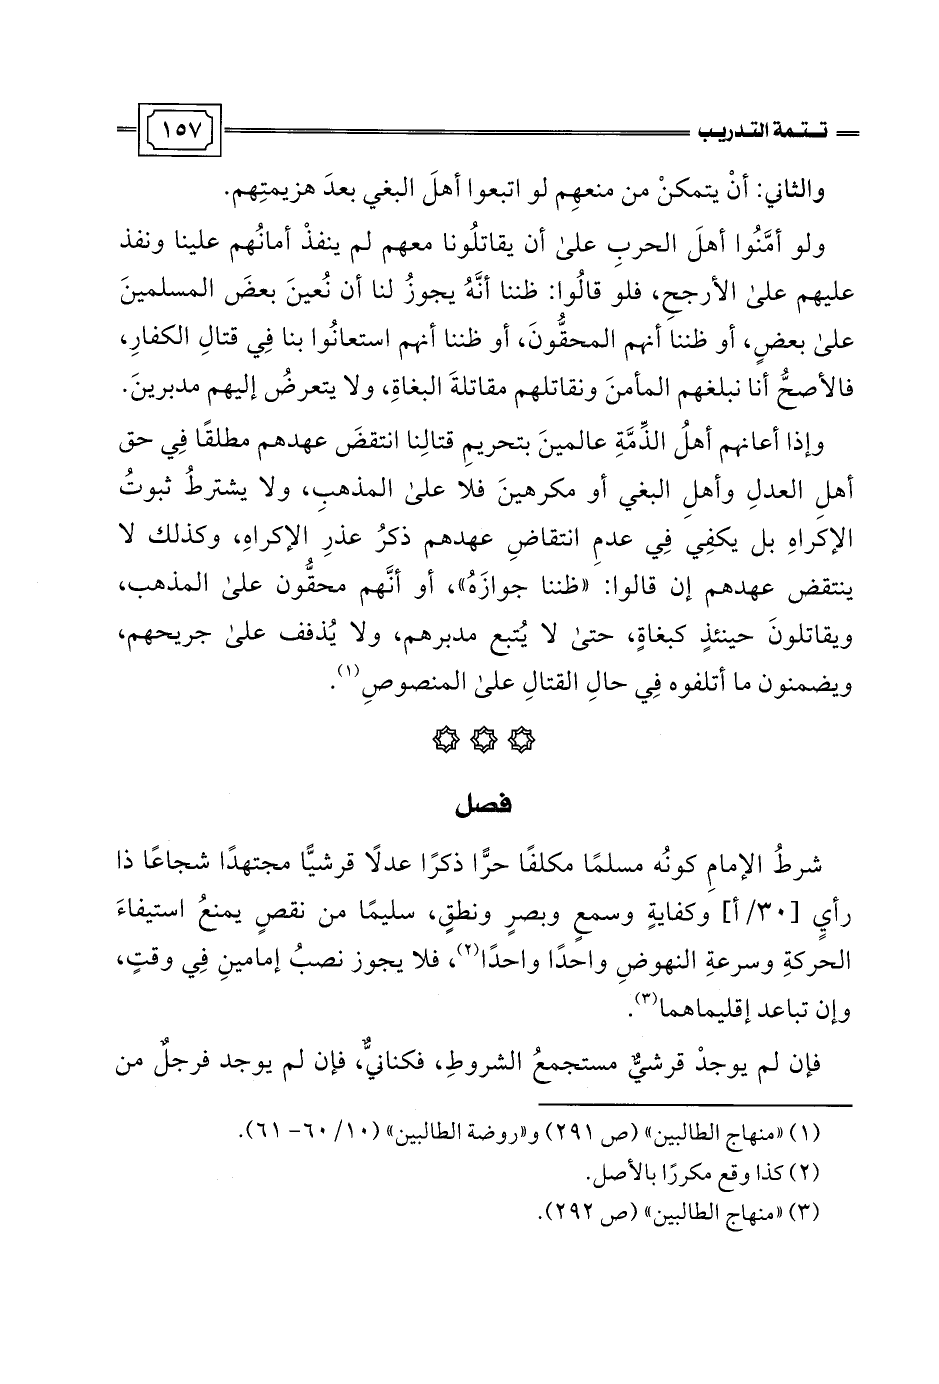 تتمة التدريب
١٥٧
والثاني: أنْ يتمكنْ من منعهِم لو اتبعوا أهلَ البغي بعدَ هزيمتِهم.
ولو أمَّنُوا أهلَ الحربِ علىٰ أن يقاتلُونا معهم لم ينفذْ أمانُهم علينا ونفذ
عليهم علىٰ الأرجحِ، فلو قالُوا: ظننا أنَّهُ يجوزُ لنا أن نُعينَ بعضَ المسلمينَ
علىٰ بعضٍ، أو ظننا أنهم المحقُّونَ، أو ظننا أنهم استعانُوا بنا فِي قتالِ الكفارِ،
فالأصحُّ أنا نبلغهم المأمنَ ونقاتلهم مقاتلةَ البغاةِ، ولا يتعرضُ إليهم مدبرينَ.
وإذا أعانهم أهلُ الذِّمَّةِ عالمينَ بتحريمِ قتالِنا انتقضَ عهدهم مطلقًا فِي حق
أهلِ العدلِ وأهلِ البغي أو مكرهينَ فلا علىٰ المذهبِ، ولا يشترطُ ثبوتُ
الإكراهِ بل يكفِي فِي عدمِ انتقاضِ عهدهم ذكرُ عذرِ الإكراهِ، وكذلك لا
ينتقض عهدهم إن قالوا: «ظننا جوازَهُ»، أو أنَّهم محقُّون علىٰ المذهب،
ويقاتلونَ حينئذٍ كبغاةٍ، حتىٰ لا يُتبع مدبرهم، ولا يُذفف علىٰ جريحهم،
ويضمنون ما أتلفوه فِي حالِ القتالِ علىٰ المنصوصِ(١).
فصل
شرطُ الإمامِ كونُه مسلمًا مكلفًا حرًّا ذكرًا عدلًا قرشيًّا مجتهدًا شجاعًا ذا
رأيٍ [٣٠/ أ] وكفايةٍ وسمعٍ وبصرٍ ونطقٍ، سليمًا من نقصٍ يمنعُ استيفاءَ
الحركةِ وسرعةِ النهوضِ واحدًا واحدًا(٢)، فلا يجوز نصبُ إمامين فِي وقتٍ،
وإن تباعد إقليماهما(٣).
فإن لم يوجدْ قرشيٌّ مستجمعُ الشروطِ، فكنانيٌّ، فإن لم يوجد فرجلٌ من
(١) «منهاج الطالبين» (ص ٢٩١) و«روضة الطالبين» (١٠/ ٦٠- ٦١).
(٢) كذا وقع مكررًا بالأصل.
(٣) «منهاج الطالبين» (ص ٢٩٢).